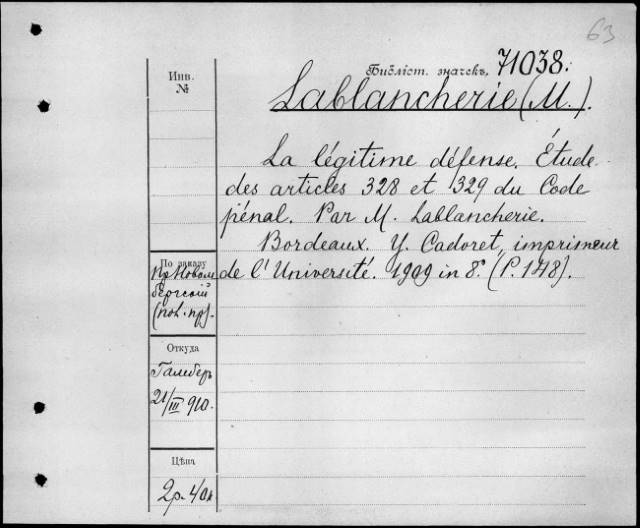 63
Библіот. значекъ, 71038.
Инв.
№
Lablancherie (M.).
La légitime défense. Étude
des articles 328 et 329 du Code
pénal. Par M. Lablancherie.
Bordeaux. Y. Cadoret, imprimeur
de l'Université. 1909 in 8°. (P. 148).
По заказу
Откуда
21/III 910.
Цѣна
2р. 40к